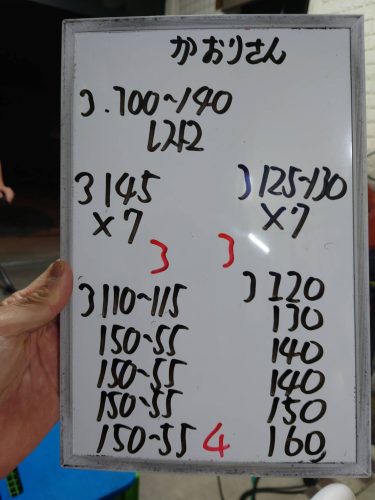 かおりさん
3.100~140
L212
3 145
×7
3
3 125~130
×7
3
3 110~115
150~55
150~55
150~55
150~55 4
3 120
130
140
140
150
160